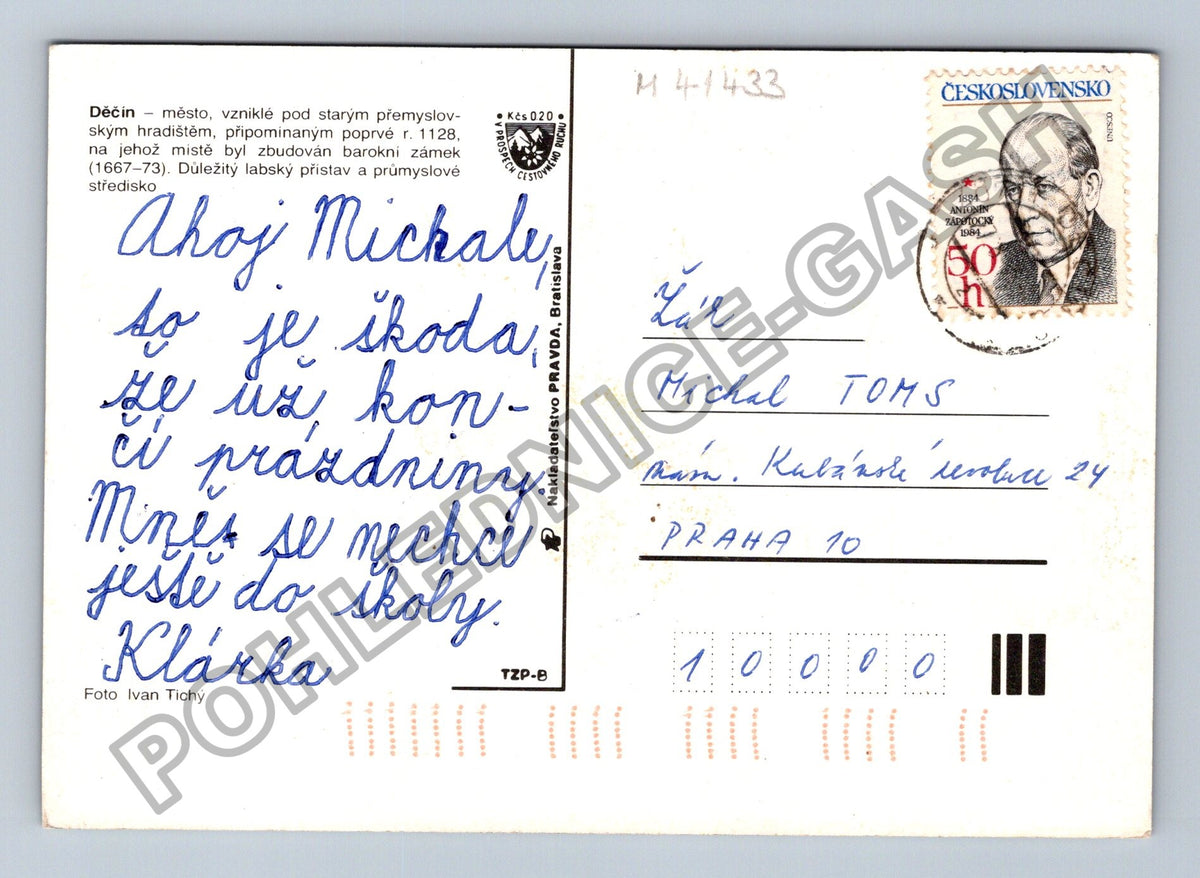 Děčín – město, vzniklé pod starým přemyslov-
ským hradištěm, připomínaným poprvé r. 1128,
na jehož místě byl zbudován barokní zámek
(1667–73). Důležitý labský přístav a průmyslové
středisko
Kčs 0,20
V PROSPĚCH CESTOVNÉHO RUCHU
Ahoj Michale,
to je škoda,
že už kon-
čí prázdniny.
Mně se nechce
ještě do školy.
Klárka
Foto Ivan Tichý
TZP-B
Nakladateľstvo PRAVDA, Bratislava
M 41433
ČESKOSLOVENSKO
UNESCO
1884
ANTONÍN
ZÁPOTOCKÝ
1984
50
h
Žák
Michal TOMS
nám. Kubánské revoluce 24
PRAHA 10
10000
POHLEDNICE-GASH